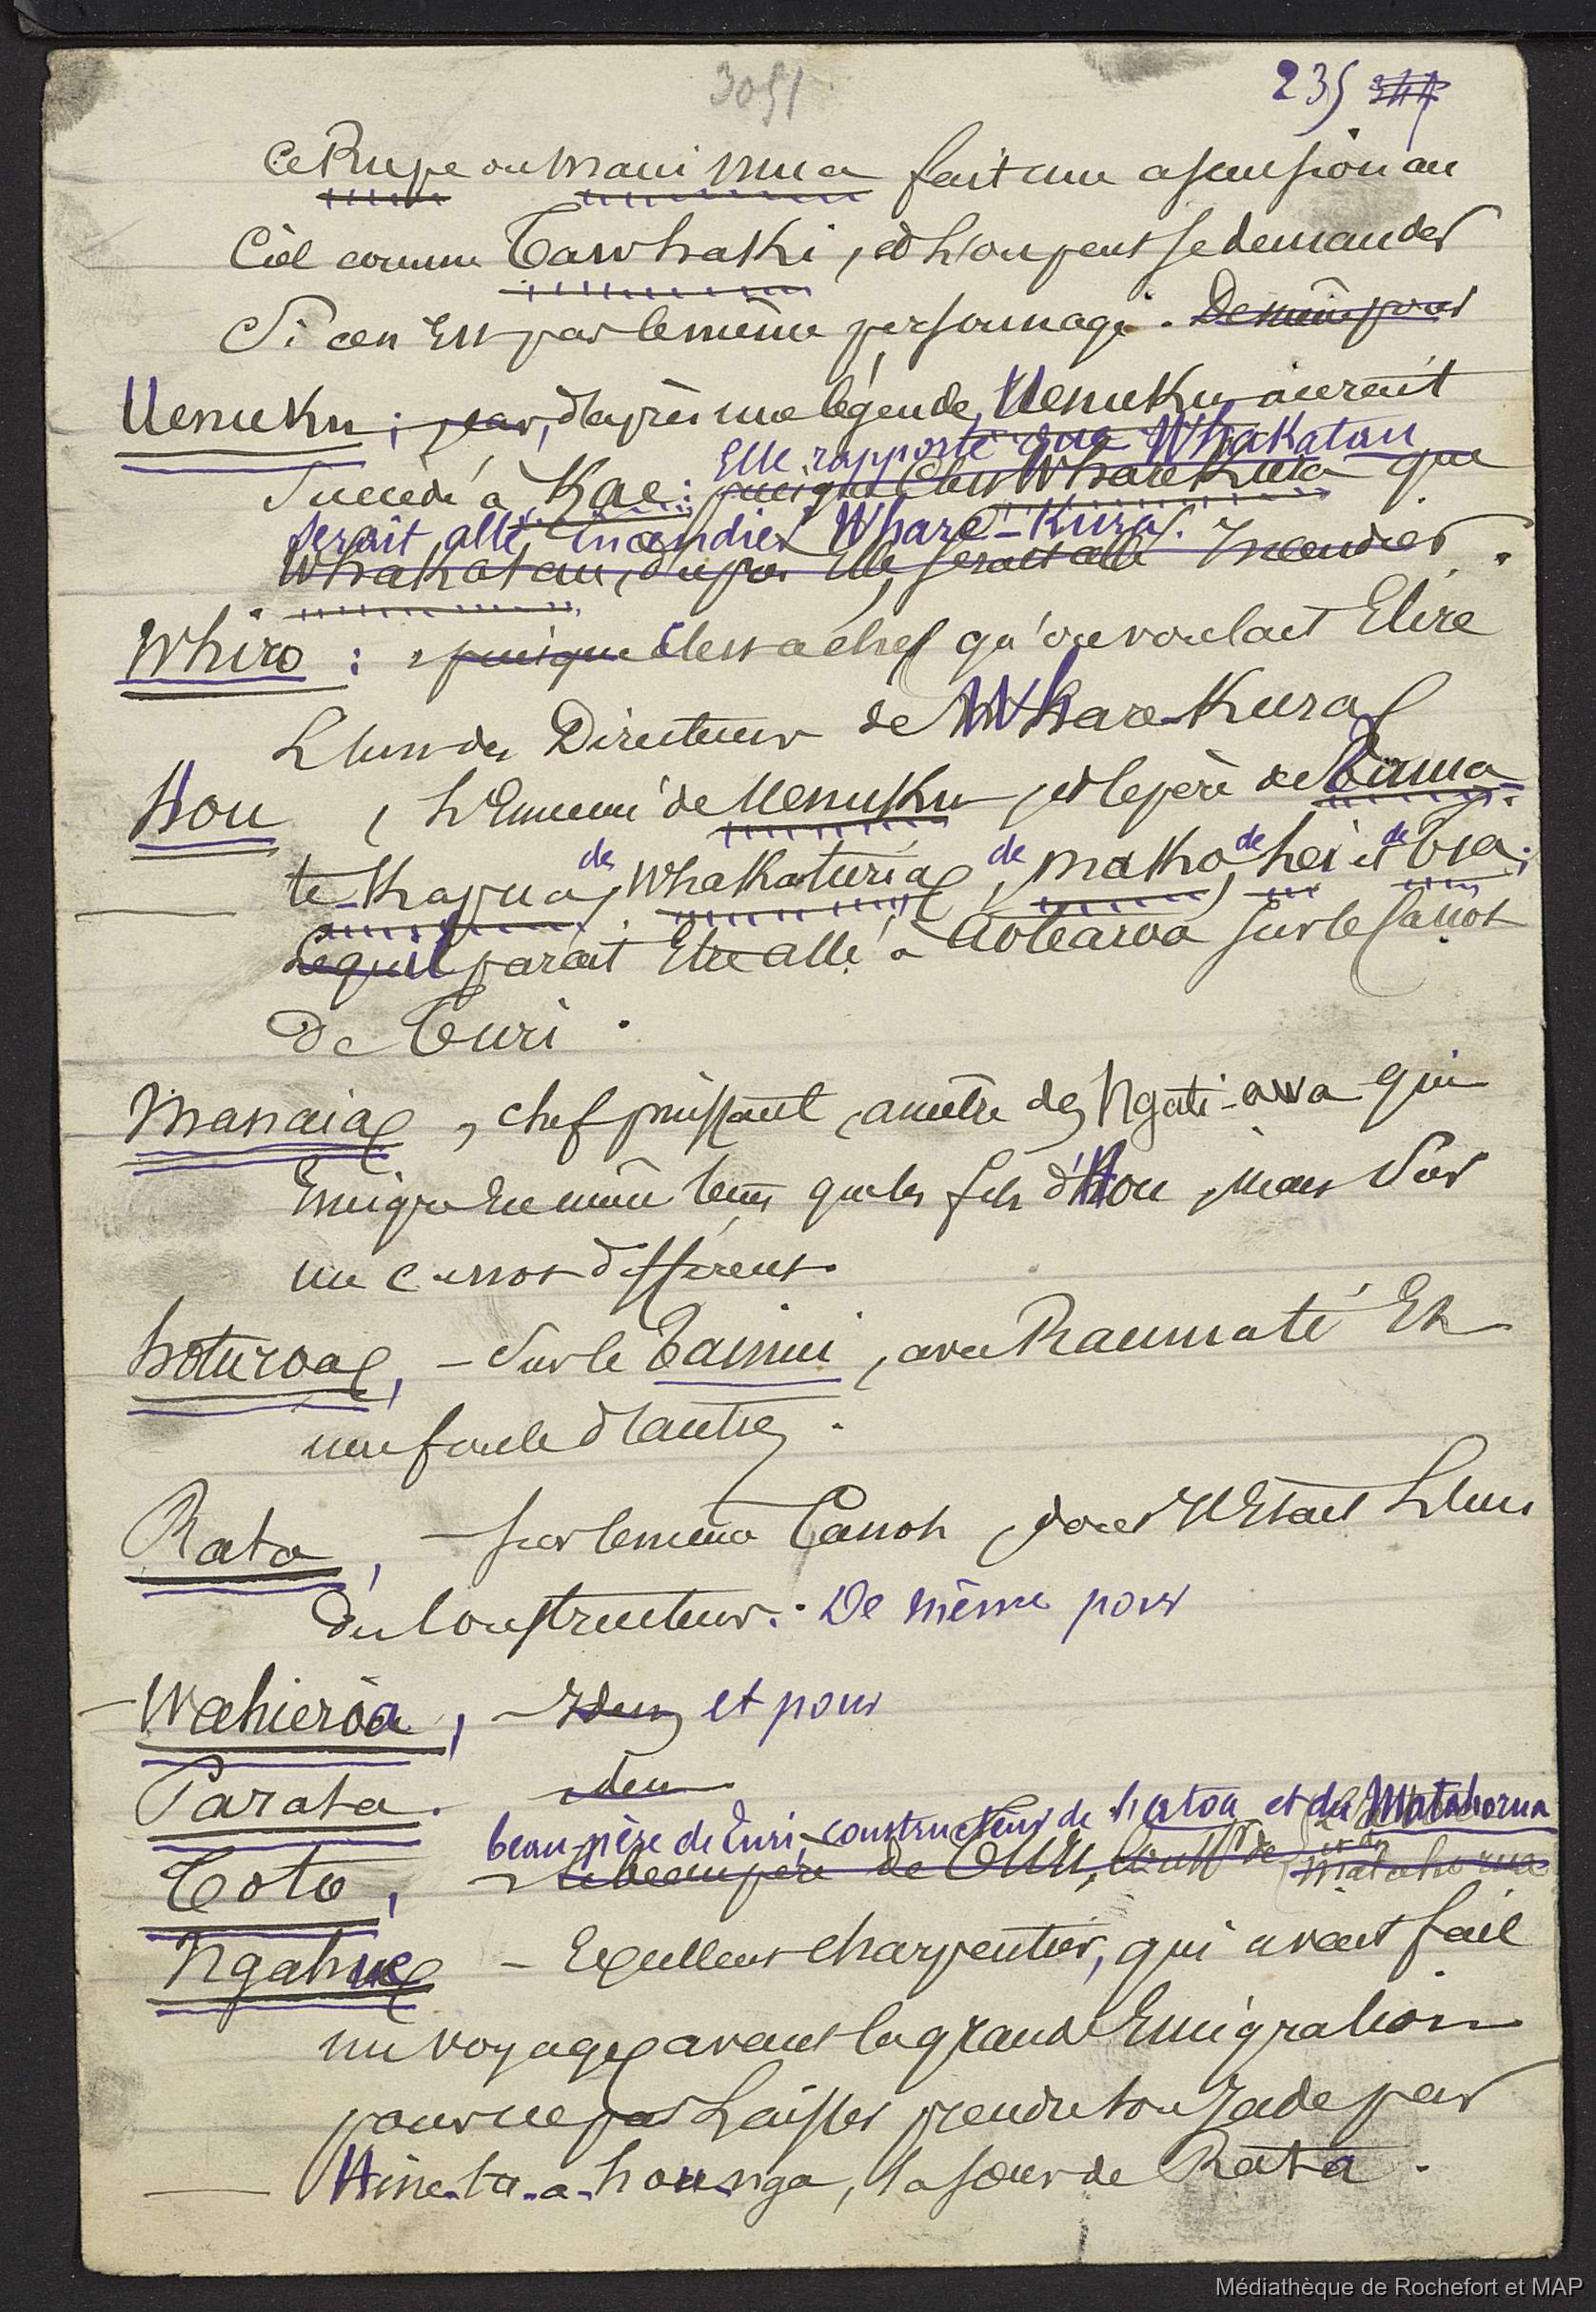 3051
235 344
Ce Rupe ou Maui mua fait une ascension au
Ciel comme Tawhaki, et l'on peut se demander
Si ce n'est pas le même personnage. De même pour
Uenuku ; car, d'après une légende, Uenuku aurait
Elle rapporte que Whakatau
succédé à Kae : puisque c'est Whare Kura que
serait allé incendier Whare-Kura.
Whakatau, d'après Elle, serait allé Incendier.
Whiro : puisque c'est ce chef qu'on voulait Elire
L'un des Directeurs de Whare-Kura
Hou , L'Ennemi de Uenuku et le père de Tama
te-Kapua, de Whakaturia, de Mako, de hei et de Tia;
Lequel parait Etre allé à Aotearoa sur le Canot
De Turi.
Manaia, chef puissant, ancêtre des Ngati-awa qui
Emigra En même tems que les fils d'Hou, mais Sur
un canot différent.
hoturoa, - Sur le Tainui, avec Raumati Et
une foule d'autres.
Rata, - sur le même Canot, dont il Etait L'un
des Constructeurs. De même pour
Wahieroa, - Idem et pour
Parata. idem
beau père de Turi, constructeur de hatoa et du Matahorua
Toto, - Le beau père de Turi, Constr de et du Matahorua
Ngahue - Excellent charpentier, qui avait fait
un voyage avant la grande Emigration
pour ne pas Laisser prendre son Jade par
Hine-tu-a-hounga, la soeur de Rata.
Médiathèque de Rochefort et MAP